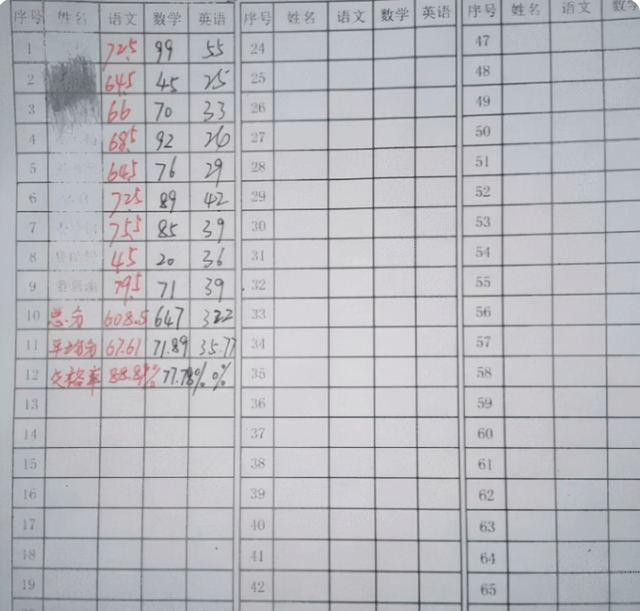 序号 姓名 语文 数学 英语 序号 姓名 语文 数学 英语 序号 姓名 语文 数学
1 72.5 99 55 24 47
2 64.5 45 25 25 48
3 66 70 33 26 49
4 68.5 92 26 27 50
5 64.5 76 29 28 51
6 72.5 89 42 29 52
7 75.5 85 39 30 53
8 45 20 36 31 54
9 79.5 71 39 32 55
10 总分 608.5 647 322 33 56
11 平均分 67.61 71.89 35.77 34 57
12 及格率 88.89% 77.78% 0% 35 58
13 36 59
14 37 60
15 38 61
16 39 62
17 40 63
18 41 64
19 42 65